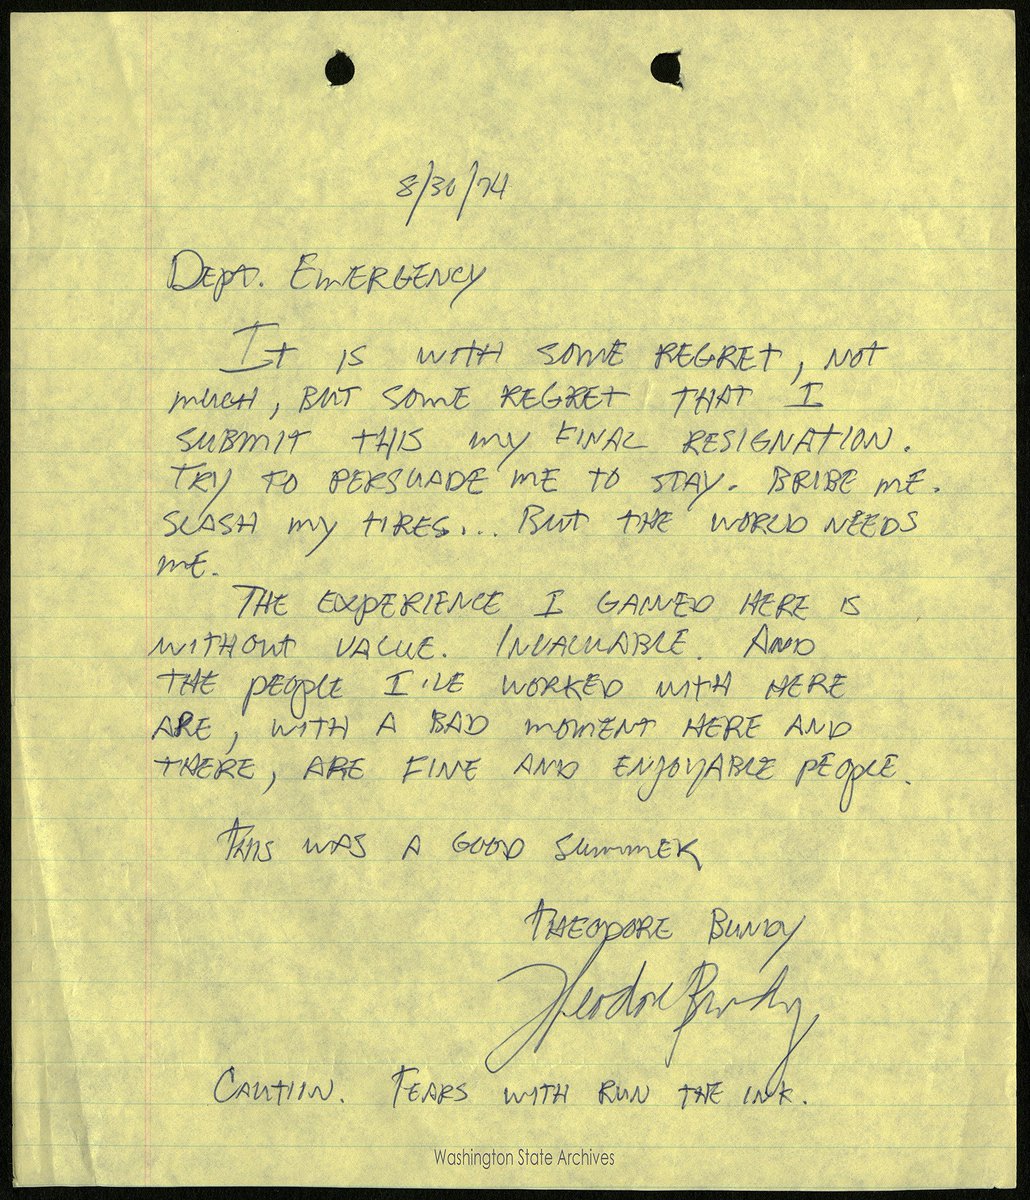 8/30/74
Dept. Emergency
It is with some regret, not
much, but some regret that I
submit this my final resignation.
Try to persuade me to stay. Bribe me.
Slash my tires... But the world needs
me.
The experience I gained here is
without value. Invaluable. And
the people I've worked with here
are, with a bad moment here and
there, are fine and enjoyable people.
This was a good summer
Theodore Bundy
Theodore Bundy
Cautiin. Tears with run the ink.
Washington State Archives